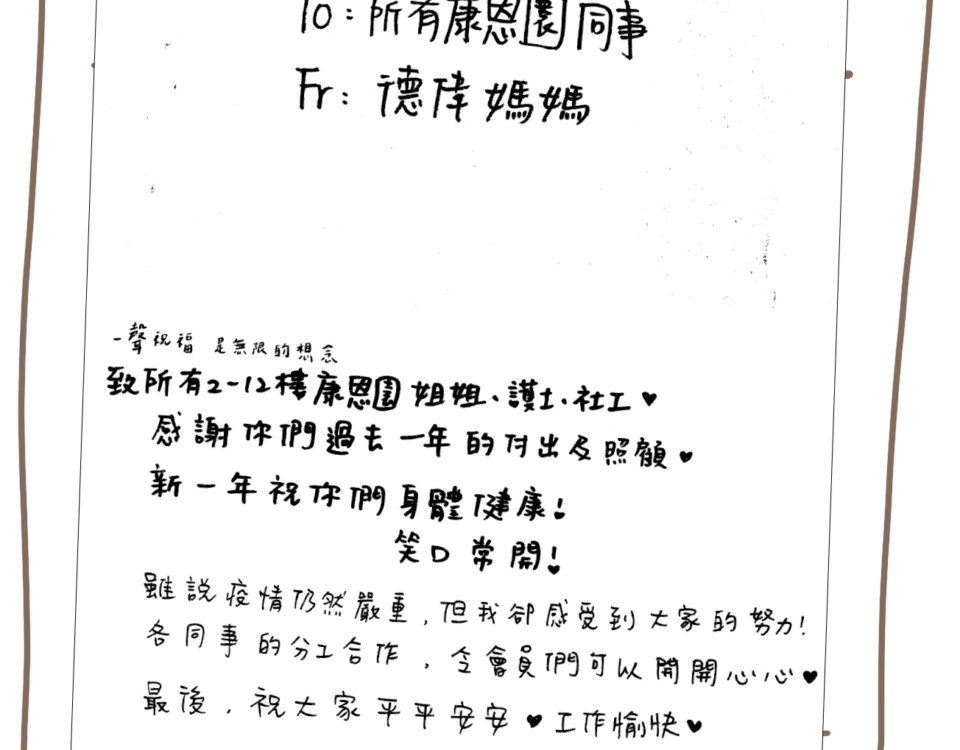 To：所有康恩園同事
Fr：德偉媽媽
一聲祝福 是無限的想念
致所有2-12樓康恩園姐姐、護士、社工♥
感謝你們過去一年的付出及照顧♥
新一年祝你們身體健康！
笑口常開！
雖說疫情仍然嚴重，但我卻感受到大家的努力！
各同事的分工合作，令會員們可以開開心心♥
最後，祝大家平平安安♥工作愉快♥